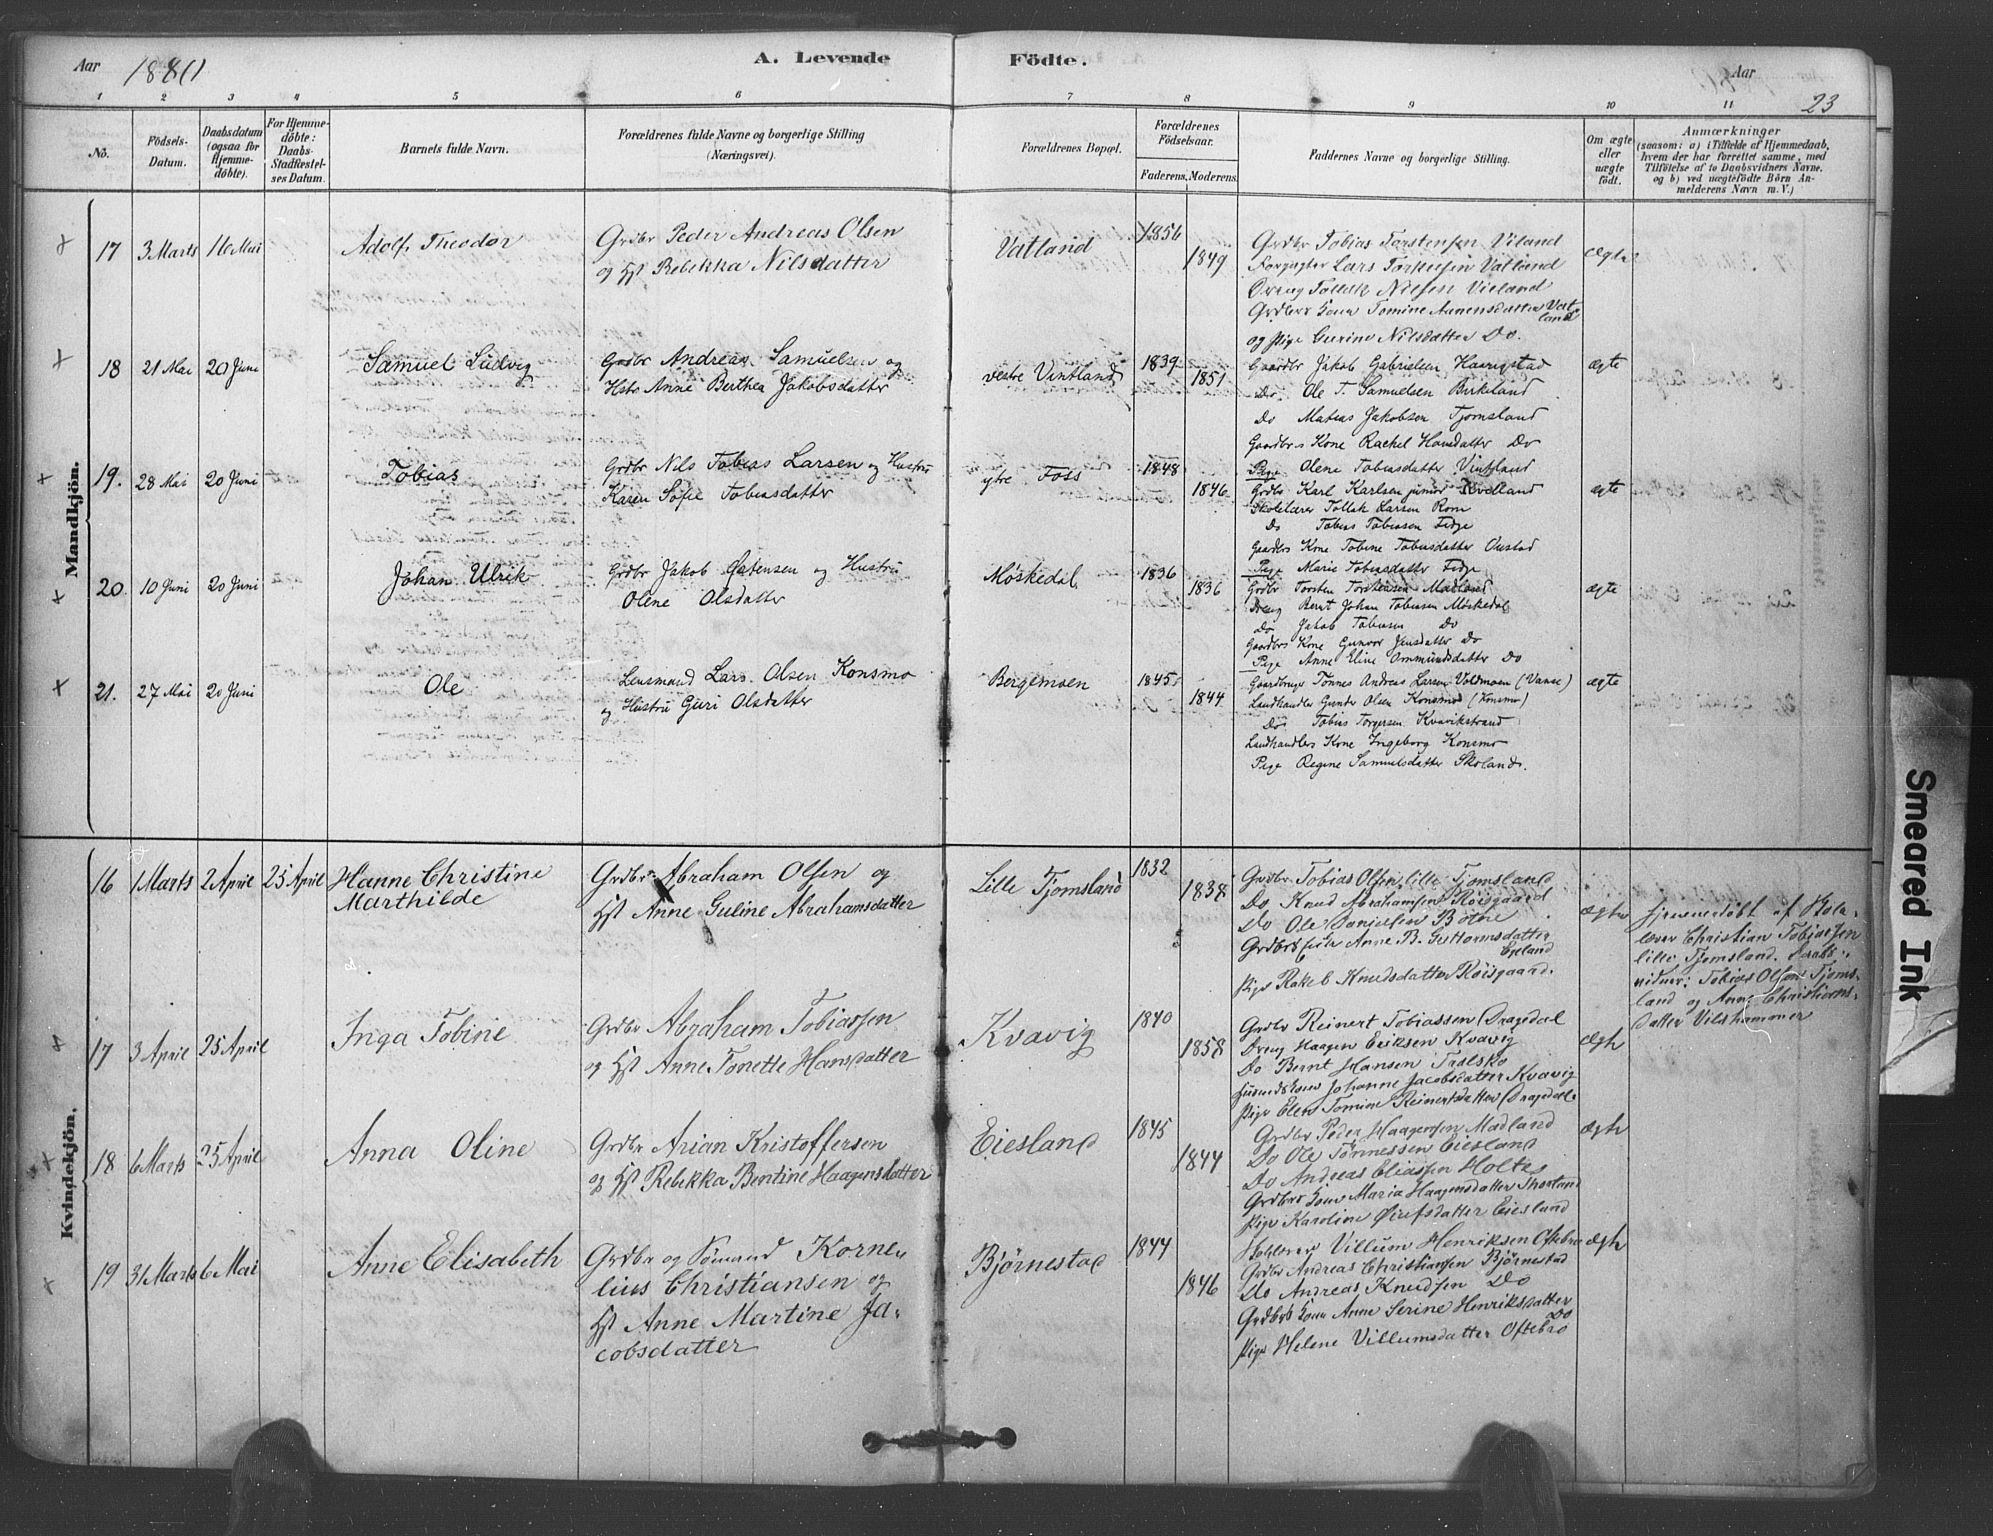 Aar 1880
A. Levende
Födte.
Aar
23
1 2 3 4 5 6 7 8 9 10 11
No.
Födsels-Datum.
Daabsdatum (ogsaa for Hjemme-döbte).
For Hjemme-döbte: Daabs-Stadfæstel-ses Datum.
Barnets fulde Navn.
Forældrenes fulde Navne og borgerlige Stilling (Næringsvei).
Forældrenes Bopæl.
Forældrenes Födselsaar.
Faderens. Moderens.
Faddernes Navne og borgerlige Stilling.
Om ægte eller uægte födt.
Anmærkninger
(saasom: a) i Tilfælde af Hjemmedaab,
hvem der har forrettet samme, med
Tilföielse af to Daabsvidners Navne,
og b) ved uægtefödte Börn An-
melderens Navn m. V.)
Mandkjön.
17 3 Marts 16 Mai Adolf Theodor
Grdbr Peder Andreas Olsen
og Hst Rebekka Nilsdatter
Vatland 1856 1849
Grdbr Tobias Torstensen Viland
Lars Vatland
Tollak Nilsen Vieland
Grdbrs Kone Tomine Aanensdatter Vat-
land
og Pige Gurine Nilsdatter Do.
ægte
18 21 Mai 20 Juni Samuel Ludvig
Grdbr Andreas Samuelsen og
Hstr Anne Berthea Jakobsdatter
vestre Vintland 1839 1851
Gaardbr Jakob Gabrielsen
Do. Ole T. Samuelsen Birkeland
Do Matias Jakobsen Tjomsland
Gaardbr.s Kone Rachel Hansdatter Do
Pige Olene Tobiasdatter Vintland
ægte
19. 28 Mai 20 Juni Tobias
Grdbr Nils Tobias Larsen og Hustru
Karen Sofie Tobiasdatter
ytre Foss 1848 1846
Grdbr Karl Karlsen junior Kvelland
Skolelærer Tollak Larsen Rom
Do Tobias Tobiassen Fidje
Gaardbrs Kone Tobine Tobiasdatter Austad
Pige Marie Tobiasdatter Fidje
ægte
20. 10 Juni 20 Juni Johan Ulrik
Grdbr Jakob og Hustru
Olene Olsdatter
Møskedal 1836 1836
Grdbr Torsten Torstensen Madland
Dreng Bernt Johan Tobiassen Møskedal
Do Jakob Tobiassen Do
Gaardbrs Kone Gunvor Jensdatter Do
Pige Anne Eline Ommundsdatter Do
ægte
21. 27 Mai 20 Juni Ole
Lensmand Lars Olsen Konsmo
og Hustru Guri Olsdatter
Bergemoen 1845 1844
Gaardbruger Tønnes Andreas Larsen Voldmoen (Vanse)
Landhandler Gunder Olsen Konsmo (Konsmo)
Do Tobias Torgersen Kvavikstrand
Landhandlers Kone Ingeborg Konsmo
Pige Regine Samuelsdatter Skoland.
ægte
Kvindekjön.
16 1 Marts 2 April 25 April Hanne Christine
Marthilde
Grdbr Abraham Olsen og
Hst Anne Guline Abrahamsdatter
Lille Tjomsland 1832 1838
Grdbr Tobias Olsen lille Tjomsland
Do Knud Abrahamsen Røisgaard
Do Ole
Grdbrs Anne B. Guttormsdatter
Eieland
Pige Rakel Knudsdatter Røisgaard.
ægte
hjemmedøbt af Skole-
lærer Christian Tobiassen
lille Tjomsland. Daabs-
vidner: Tobias Olsen Tjoms-
land og Anne Christians-
datter Vilshammer
17 3 April 25 April Inga Tobine
Grdbr Abraham Tobiassen
og Hst Anne Tonette Hansdatter
Kvavig 1840 1858
Grdbr Reinert Tobiassen Dragedal
Dreng Haagen Eriksen Kvavig
Do Bernt Hansen Trælsko
Johanne Jacobsdatter Kvavig
Pige Elen Tomine Reinertsdatter Dragedal
ægte
18 6 Marts 25 April Anna Oline
Grdbr Arian Kristoffersen
og Hst Rebekka Bentine Haagensdatter
Eiesland 1845 1844
Grdbr Peder Haagensen Madland
Do Ole Tønnessen Eiesland
Do Andreas Eliassen Holte
Grdbrs Kone Maria Haagensdatter
Pige Karoline Eiesland
ægte
19 31 Marts 6 Mai Anne Elisabeth
Grdbr og Sømand Korne-
lius Christiansen og
Hst Anne Martine Ja-
cobsdatter
Bjørnestad 1844 1846
Villum Henriksen Oftebro
Grdbr Andreas Christiansen Bjørnestad
Do Andreas Knudsen Do
Grdbrs Kone Anne Serine Henriksdatter
Do
Pige Helene Villumsdatter Oftebro
ægte
Smeared Ink